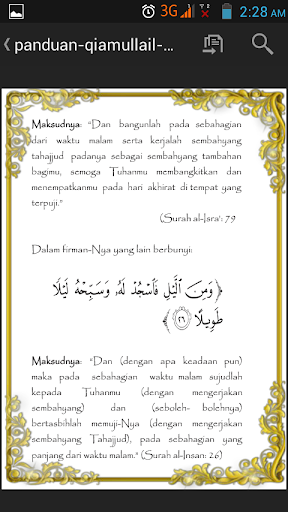 3G 2:28 AM
panduan-qiamullail-...
Maksudnya: “Dan bangunlah pada sebahagian
dari waktu malam serta kerjalah sembahyang
tahajjud padanya sebagai sembahyang tambahan
bagimu, semoga Tuhanmu membangkitkan dan
menempatkanmu pada hari akhirat di tempat yang
terpuji.”
(Surah al-Isra': 79
Dalam firman-Nya yang lain berbunyi:
﴿ وَمِنَ ٱلَّيۡلِ فَٱسۡجُدۡ لَهُۥ وَسَبِّحۡهُ لَيۡلًا
طَوِيلًا ٢٦ ﴾
Maksudnya: “Dan (dengan apa keadaan pun)
maka pada sebahagian waktu malam sujudlah
kepada Tuhanmu (dengan mengerjakan
sembahyang) dan (seboleh- bolehnya)
bertasbihlah memuji-Nya (dengan mengerjakan
sembahyang Tahajjud), pada sebahagian yang
panjang dari waktu malam.” (Surah al-Insan: 26)